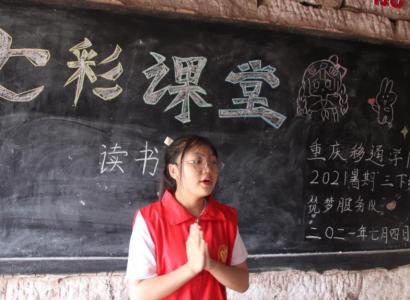 七彩课堂
读书
重庆移通学
2021暑期"三下
筑梦服务队
二〇二一年七月四日